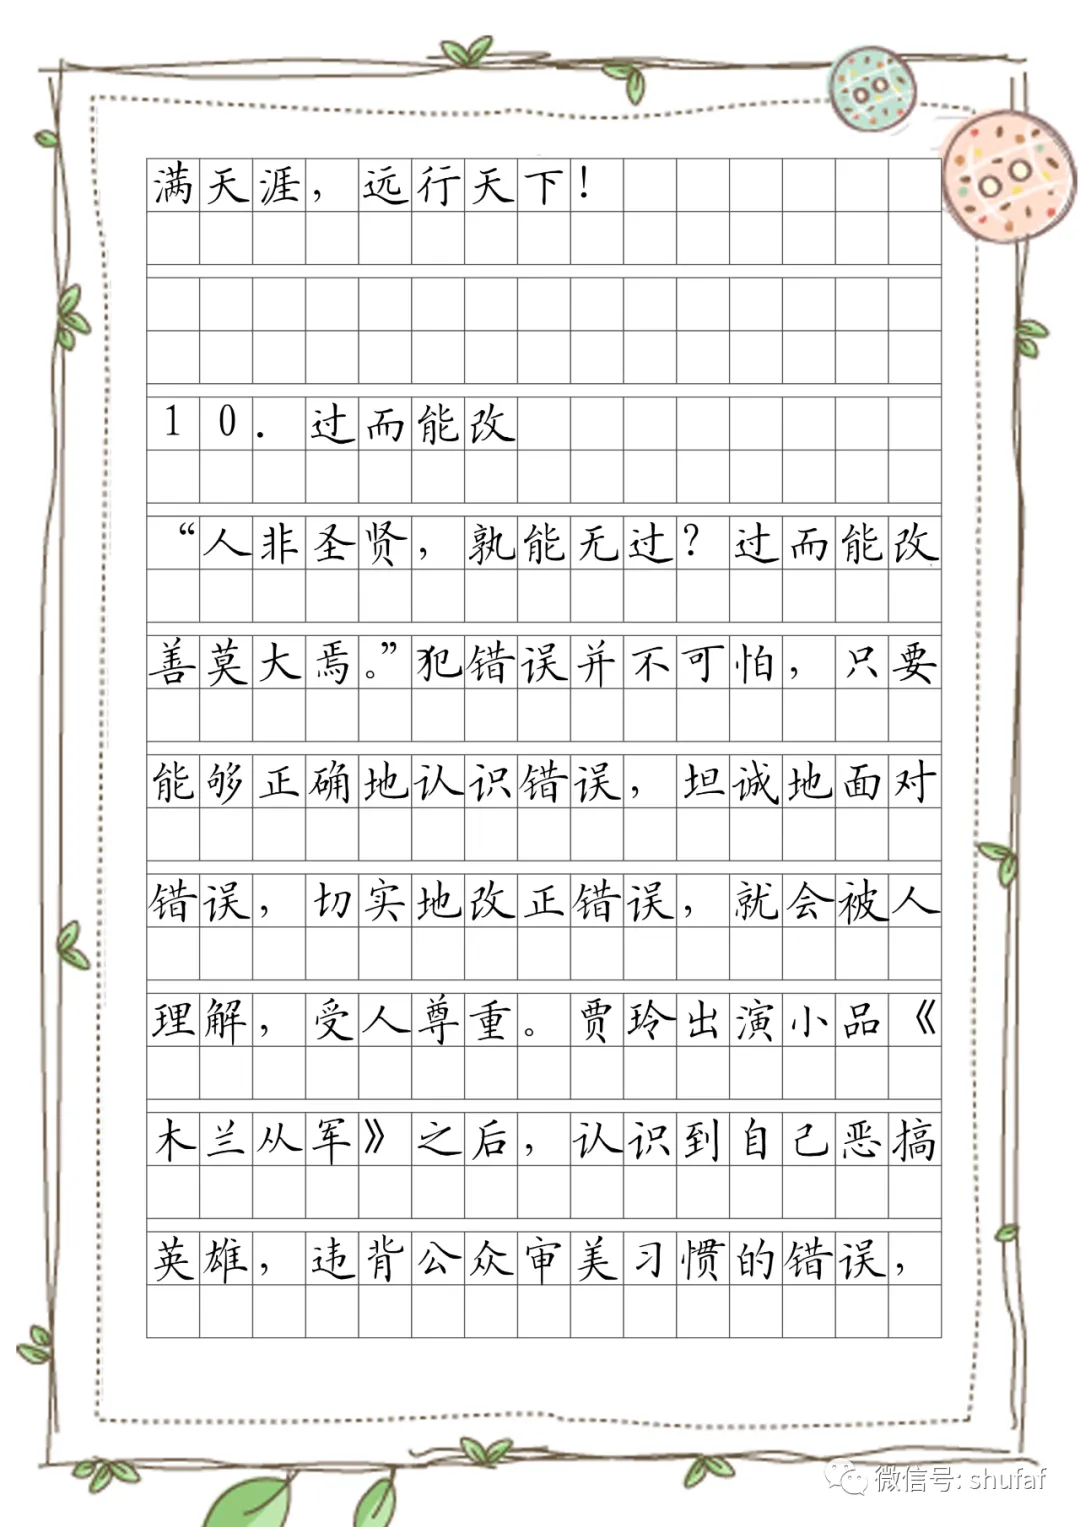 满天涯，远行天下！
10．过而能改
“人非圣贤，孰能无过？过而能改
善莫大焉。”犯错误并不可怕，只要
能够正确地认识错误，坦诚地面对
错误，切实地改正错误，就会被人
理解，受人尊重。贾玲出演小品《
木兰从军》之后，认识到自己恶搞
英雄，违背公众审美习惯的错误，
微信号: shufaf